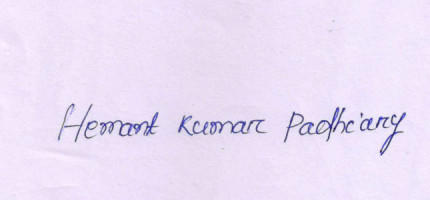 Hemant Kumar Padhiary